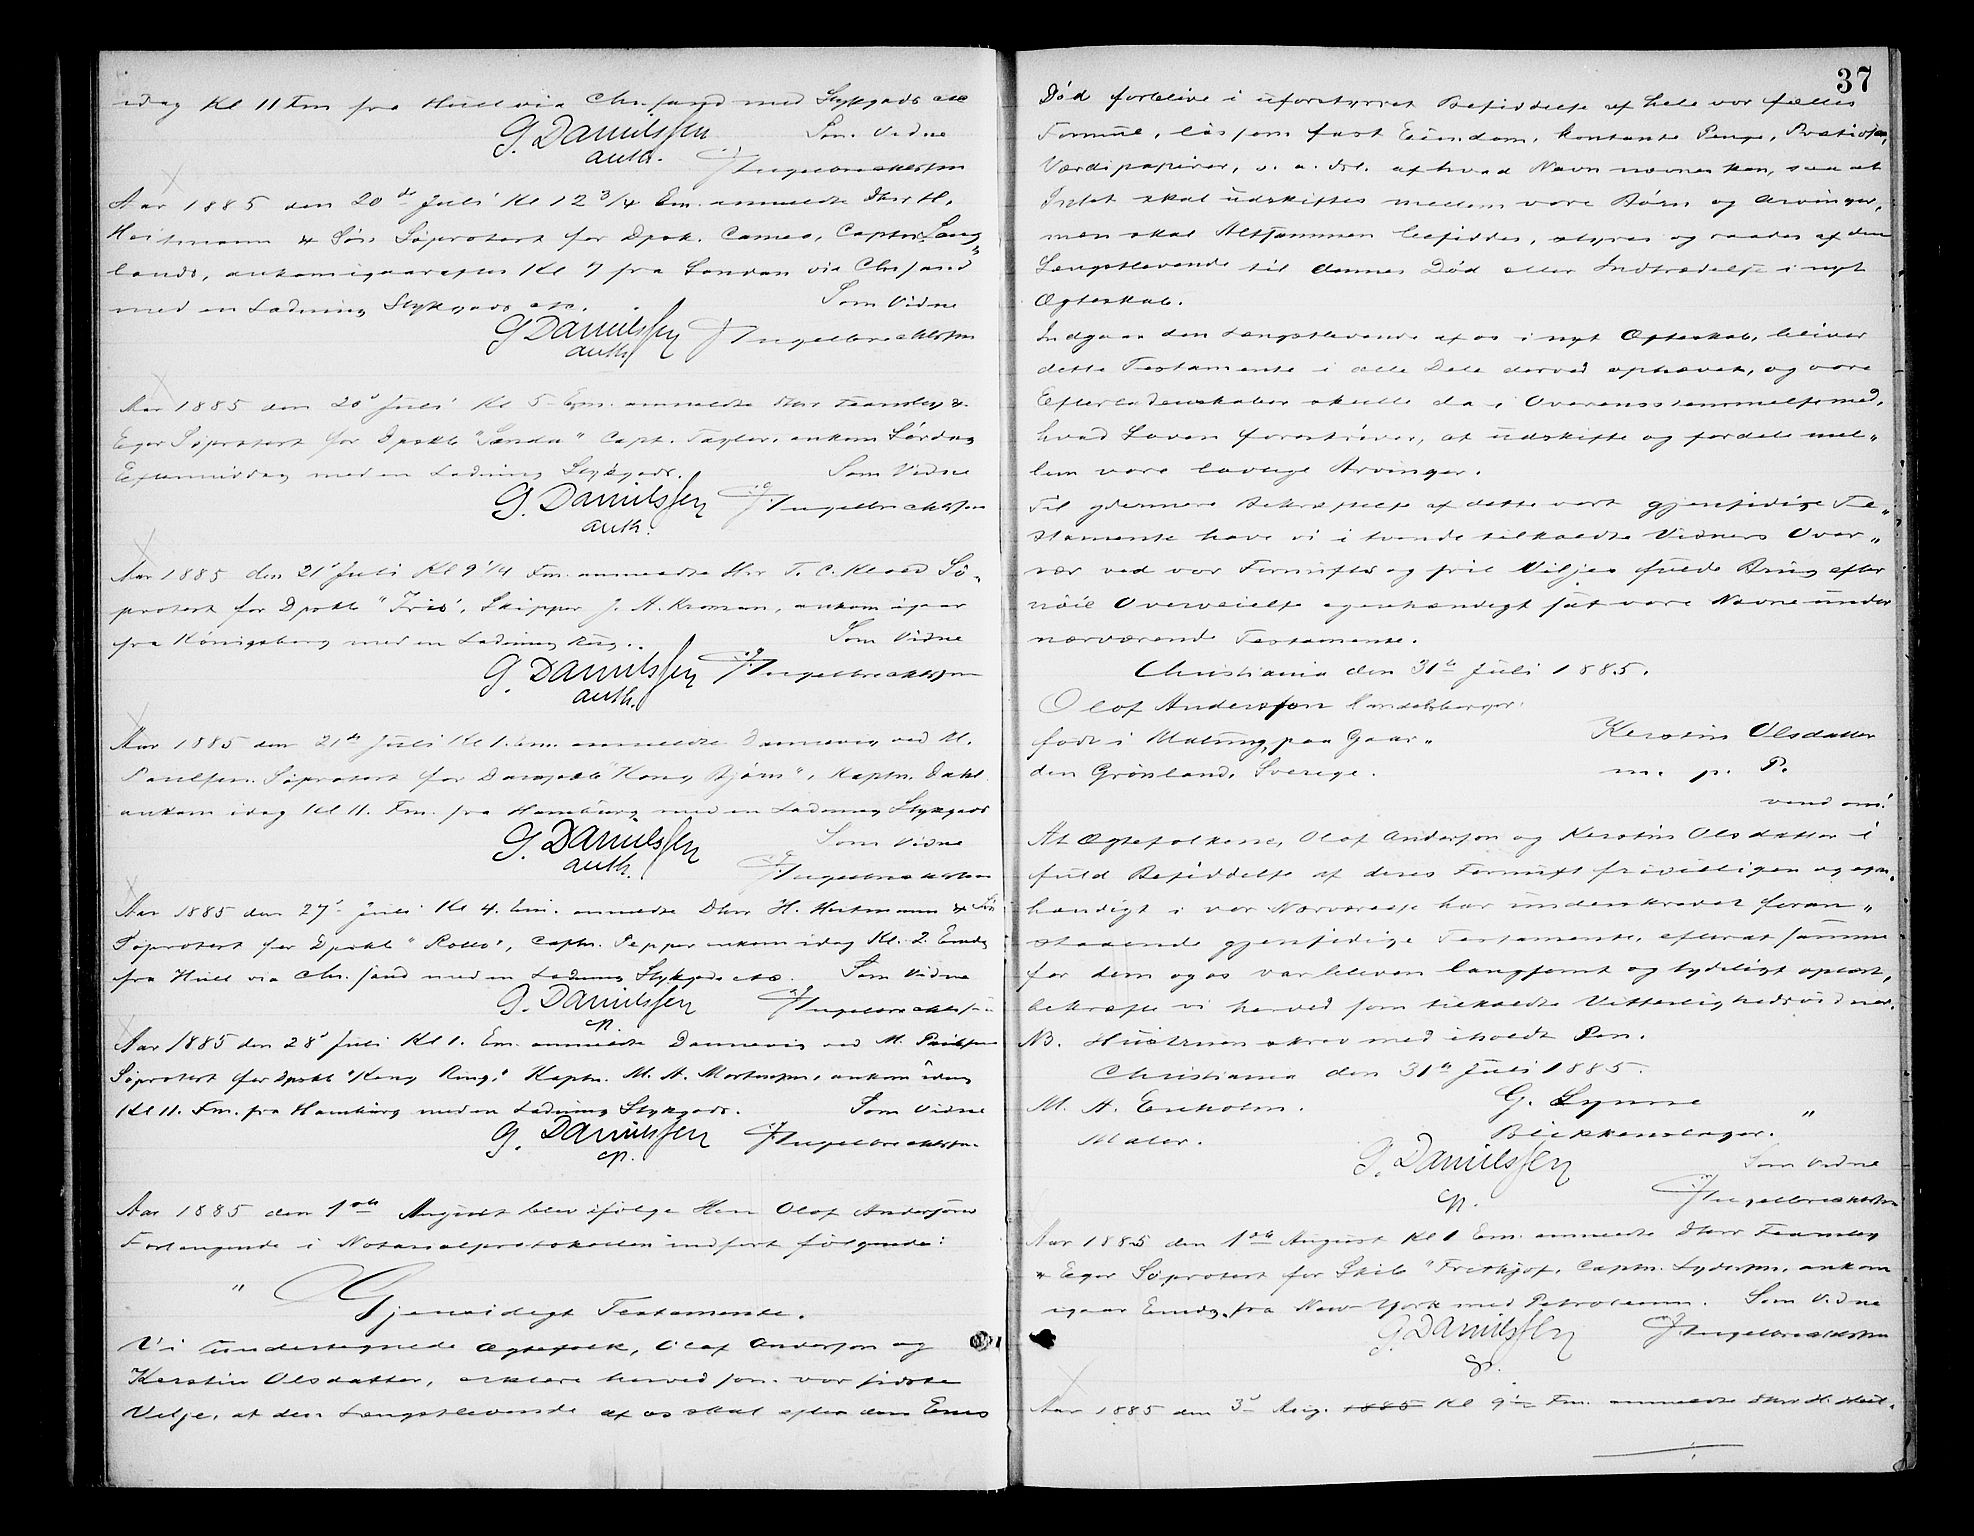 idag Kl 11 Fm fra Hull via Chr.sand med Stykgods etc
G. Daniels̈sen Som Vidne
auth. Ingelbrechtsen
Aar 1885 den 20de Juli Kl 12 3/4 Em. anmeldte Dhrr H.
Heitmann & Søn Søprotest for Dpsk. Cameo, Captn Lang„
lands, ankom igaaraftes Kl 7 fra London via Chrsand
med en Ladning Stykgods etc. Som Vidne
G Danielssen Ingelbrechtsen
auth.
Aar 1885 den 20d Juli Kl 5 Em. anmeldte Dhrr Fearnley &
Eger Søprotest for Dpskb "Sanda" Capt. Taylor, ankom Lørdag
Eftermiddag med en Ladning Stykgods. Som Vidne
G. Danielssen Ingelbrechtsen
auth.
Aar 1885 den 21d Juli Kl 9 1/4 Fm. anmeldte Hrr T. C. Sø„
protest for Dpskb "Iris", Skipper J. H. Kroman, ankom igaar
fra Königsberg med en Ladning Rug. Som Vidne
G. Danielssen Ingelbrechtsen
auth.
Aar 1885 den 21de Juli Kl 1. Em. anmeldte Dannevig ved M.
Paulsen Søprotest for Dampskb "Kong Bjørn", Kaptn. Dahl
ankom idag Kl 11. Fm. fra Hamburg med en Ladning Stykgods
G. Danielssen Som Vidne
auth. Ingelbrechtsen
Aar 1885 den 27d Juli Kl 4. Em. anmeldte Dhrr H. Heitmann & Søn
Søprotest for Dpskb "Rollo", Captn. Pepper ankom idag Kl. 2 Emdg
fra Hull via Chr.sand med en Ladning Stykgods etc. Som Vidne
G. Danielssen Ingelbrechtsen
cp.
Aar 1885 den 28d Juli Kl 1. Em. anmeldte Dannevig ved M. Paulsen
Søprotest for Dpskb "Kong Ring," Kaptn. M. A. Mortensen, ankom idag
Kl 11. Fm. fra Hamburg med en Ladning Stykgods. Som Vidne
G. Danielssen Ingelbrechtsen
cp.
Aar 1885 den 1ste August blev ifølge Herr Olof Anderssons
Forlangende i Notarialprotokollen indført følgende:
" Gjensidigt Testamente.
Vi undertegnede Ægtefolk, Olof Andersson og
Kerstin Olsdatter, erklære herved som vor sidste
Vilje, at den Længstlevende af os skal efter den Enes
37
Død forblive i uforstyrret Besiddelse af hele vor fælles
Formue, løs som fast Eiendom, kontante Penge, Prætiosa,
Værdipapirer, o. a. dsl. af hvad Navn nævnes kan, saa at
Intet skal udskiftes mellem vore Børn og Arvinger,
men skal Altsammen besiddes, styres og raades af den
Længstlevende til dennes Død eller Indtrædelse i nyt
Ægteskab.
Indgaar den Længstlevende af os i nyt Ægteskab, bliver
dette Testamente i alle Dele derved ophævet, og vore
Efterladenskaber skulle da i Overensstemmelse med,
hvad Loven foreskriver, at udskifte og fordele mel„
lem vore lovlige Arvinger.
Til ydermere Bekræftelse af dette vort gjensidige Te„
stamente have vi i tvende tilkaldte Vidners Over„
vær ved vor Fornufts og frie Viljes fulde Brug efter
nøie Overveielse egenhændigt sat vore Navne under
nærværende Testamente.
Christiania den 31te Juli 1885.
Olof Andersson
født i Malung, paa Gaar„ Kerstin Olsdatter
den Grönland, Sverige. m. p. P.
vend om!
At Ægtefolkene, Olof Andersson og Kerstin Olsdatter i
fuld Besiddelse af deres Fornuft frivilligen og egen„
hændigt i vor Nærværelse har underskrevet foran„
staaende gjensidige Testamente, efterat samme
for dem og os var bleven langsomt og tydeligt oplæst,
bekræfte vi herved som tilkaldte Vitterlighedsvidner.
NB. Hustruen skrev med iholdt Pen.
Christiania den 31te Juli 1885.
M. A. Enholm. G. Lynne "
Maler. Blikkenslager.
G. Danielssen Som Vidne
cp. Ingelbrechtsen
Aar 1885 den 1ste August Kl 1 Em. anmeldte Dhrr Fearnley
& Eger Søprotest for Skib "Frithjof, Captn. Sydersen, ankom
igaar Emdg. fra New-York med Petroleum. Som Vidne
G. Danielssen Ingelbrechtsen
cp.
Aar 1885 den 3d Aug. 1885 Kl 9 1/2 Fm. anmeldte Dhrr H. Heit„